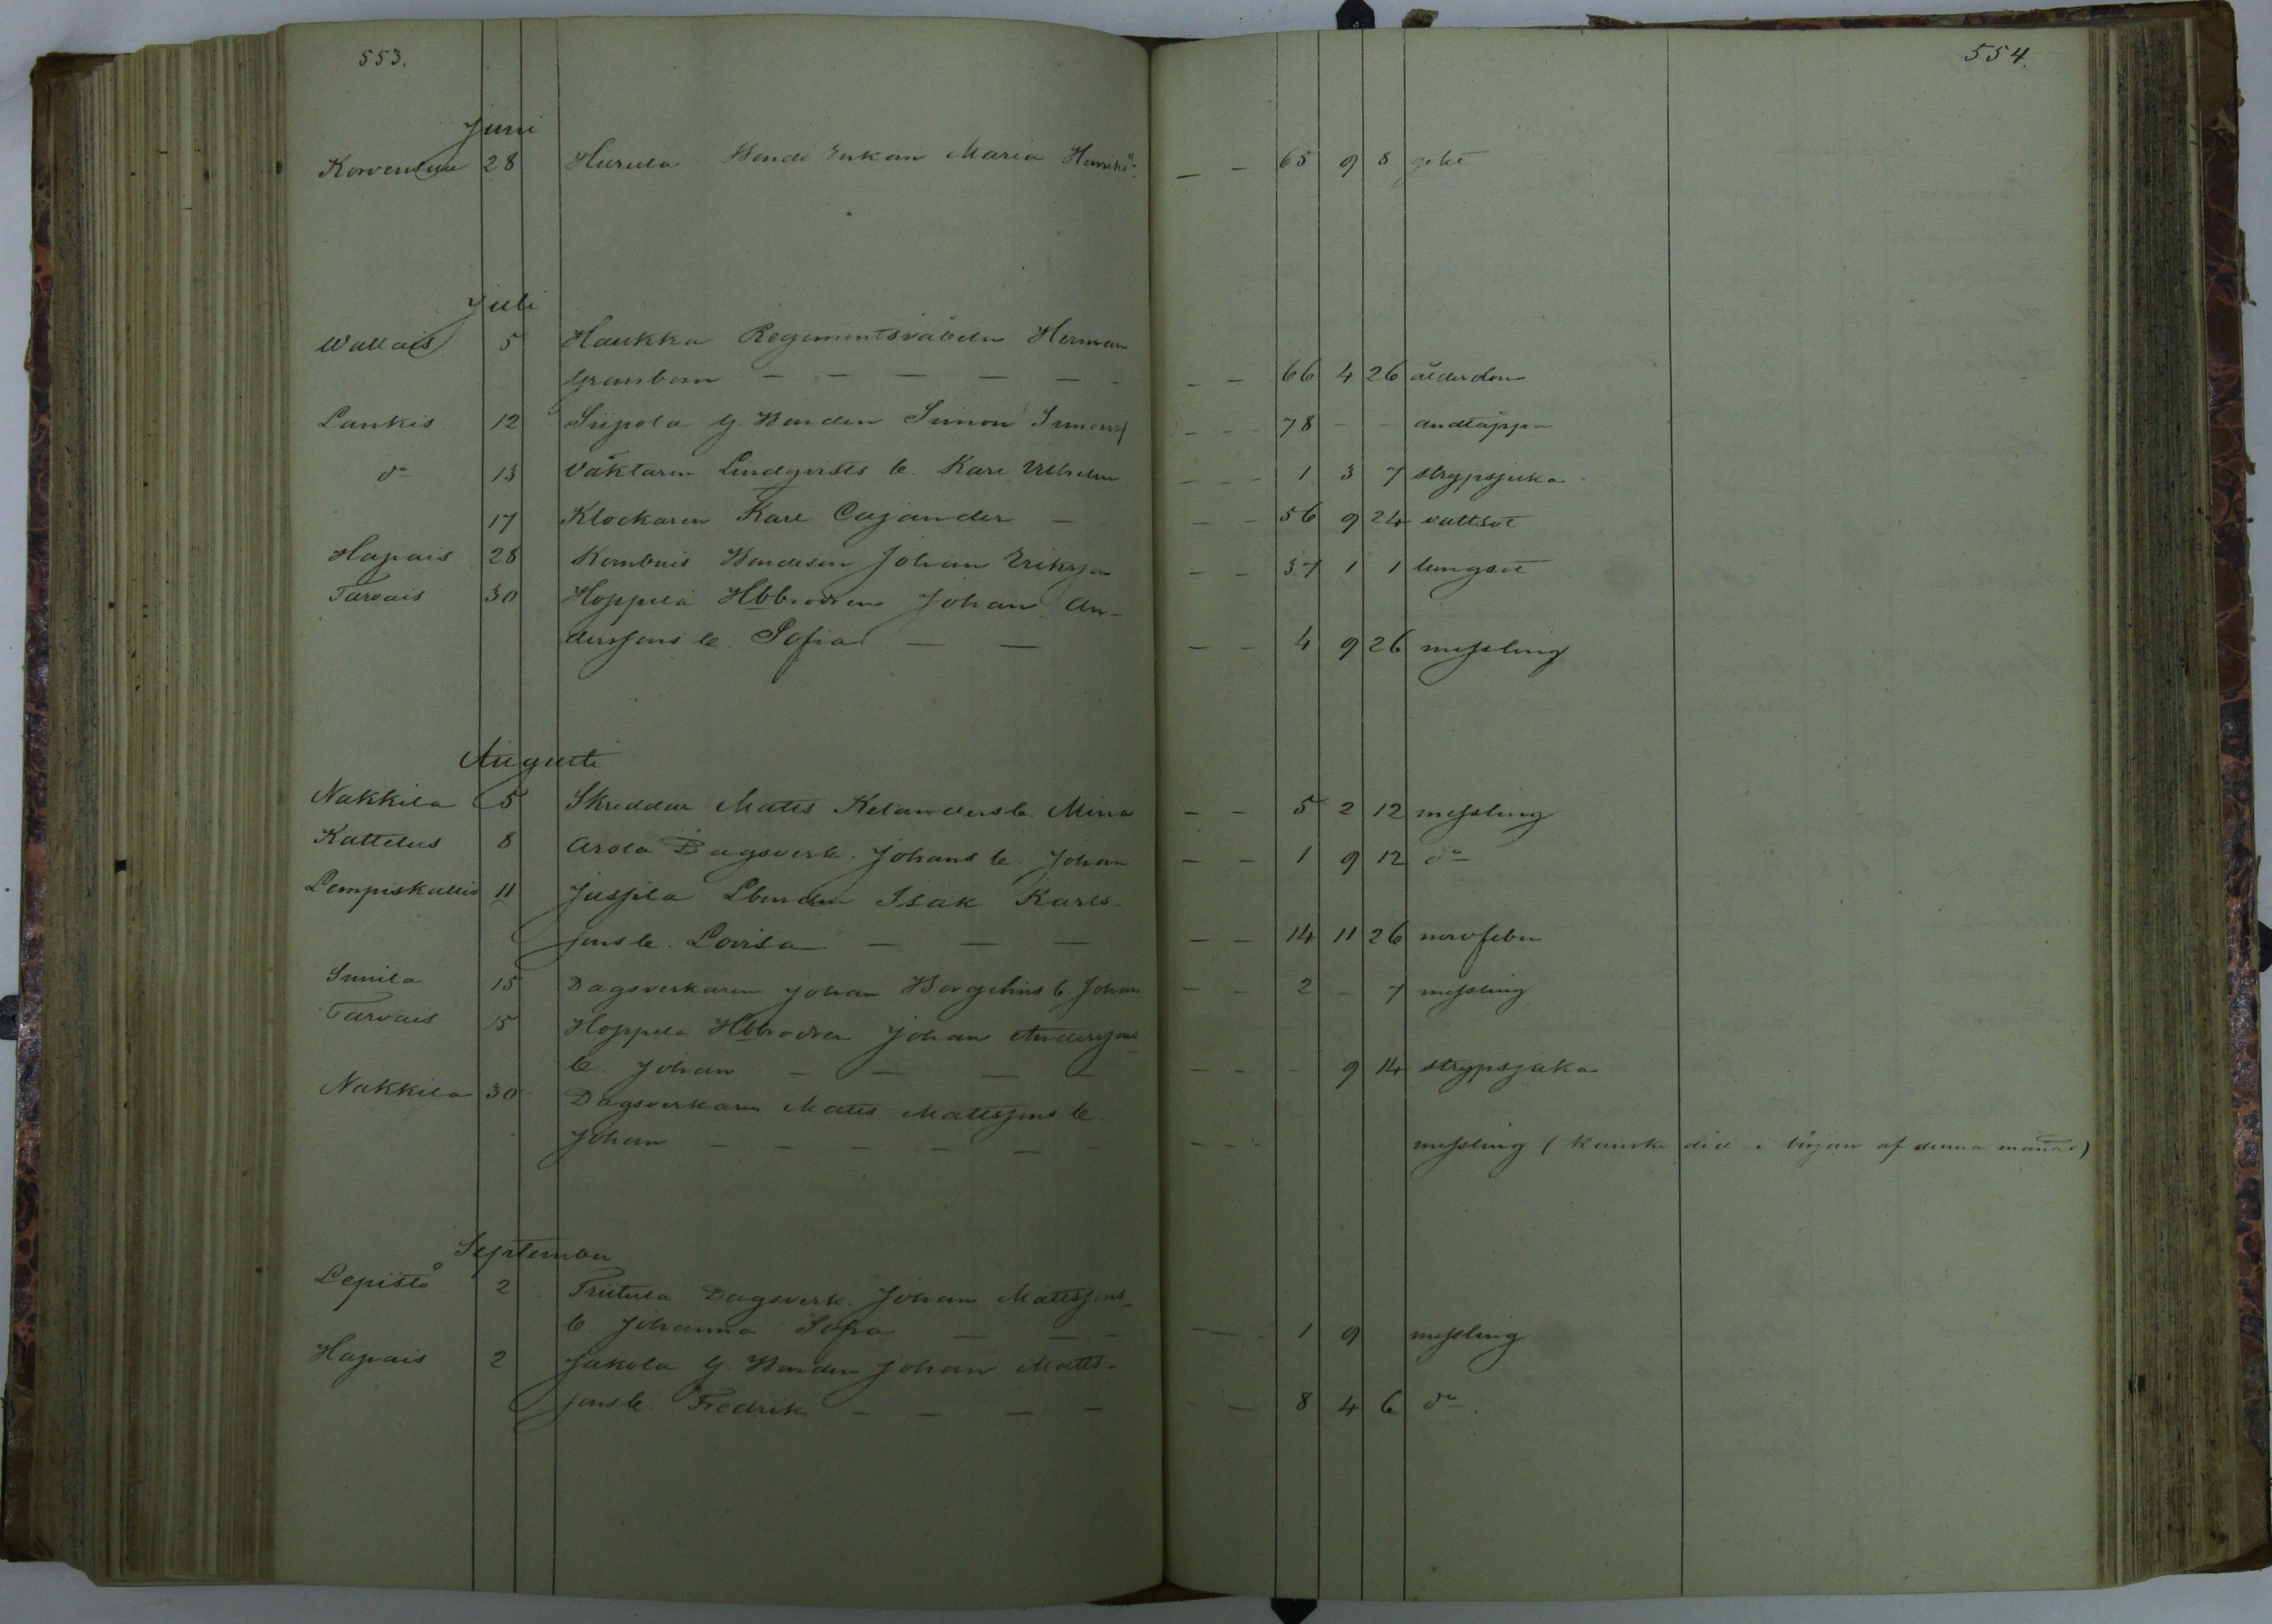 553.
554.
Juni
28 Hurula Bonde Enkan Maria Henriksd: — — 65 9 8 gikt
Juli
Wallais 5 Haukka Regementsväbeln Herman
Granbom — — — — — — — — 66 4 26 ålderdom
Lankis 12 Siipola G. Bonden Simon Simonss — — — 78 — — andtäppa
do 13 Väktaren Lindqvists b. Karl Vilhelm — — — 1 3 7 strypsjuka
17 Klockaren Karl Cajander — — — 56 9 24 vattsot
Hapais 28 Bondeson Johan Eriksson — — 37 1 1 lungsot
Tarvais 30 Hoppela Hbbrodren Johan An-
derssons b. Sofia — — — — 4 9 26 messling
Augusti
Nakkila 5 Skreddar Matts Kelanders b. Mina — — 5 2 12 messling
Kattelus 8 Arola Dagsverk. Johans b. Johan — — 1 9 12 do
Lempiskallio 11 Jussila Lbonden Isak Karls-
sons b. Lovisa — — — — — 14 11 26 nervfeber
Sunila 15 Dagsverkaren Johan Bergelins b. Johan — — 2 — 7 messling
Tarvais 15 Hoppela Hbbrodren Johan Anderssons
b. Johan — — — — — — — 9 14 strypsjuka
Nakkila 30 Dagsverkaren Matts Mattssons b.
Johan — — — — — — — — — messling (kanske död i början af denna månad)
September
Lepistö 2 Triitula Dagsverk. Johan Mattssons
b. Johanna Sofia — — — — — 1 9 messling
Hapais 2 Jakola G. Bonden Johan Matts-
sons b. Fredrik — — — — — — 8 4 6 do.